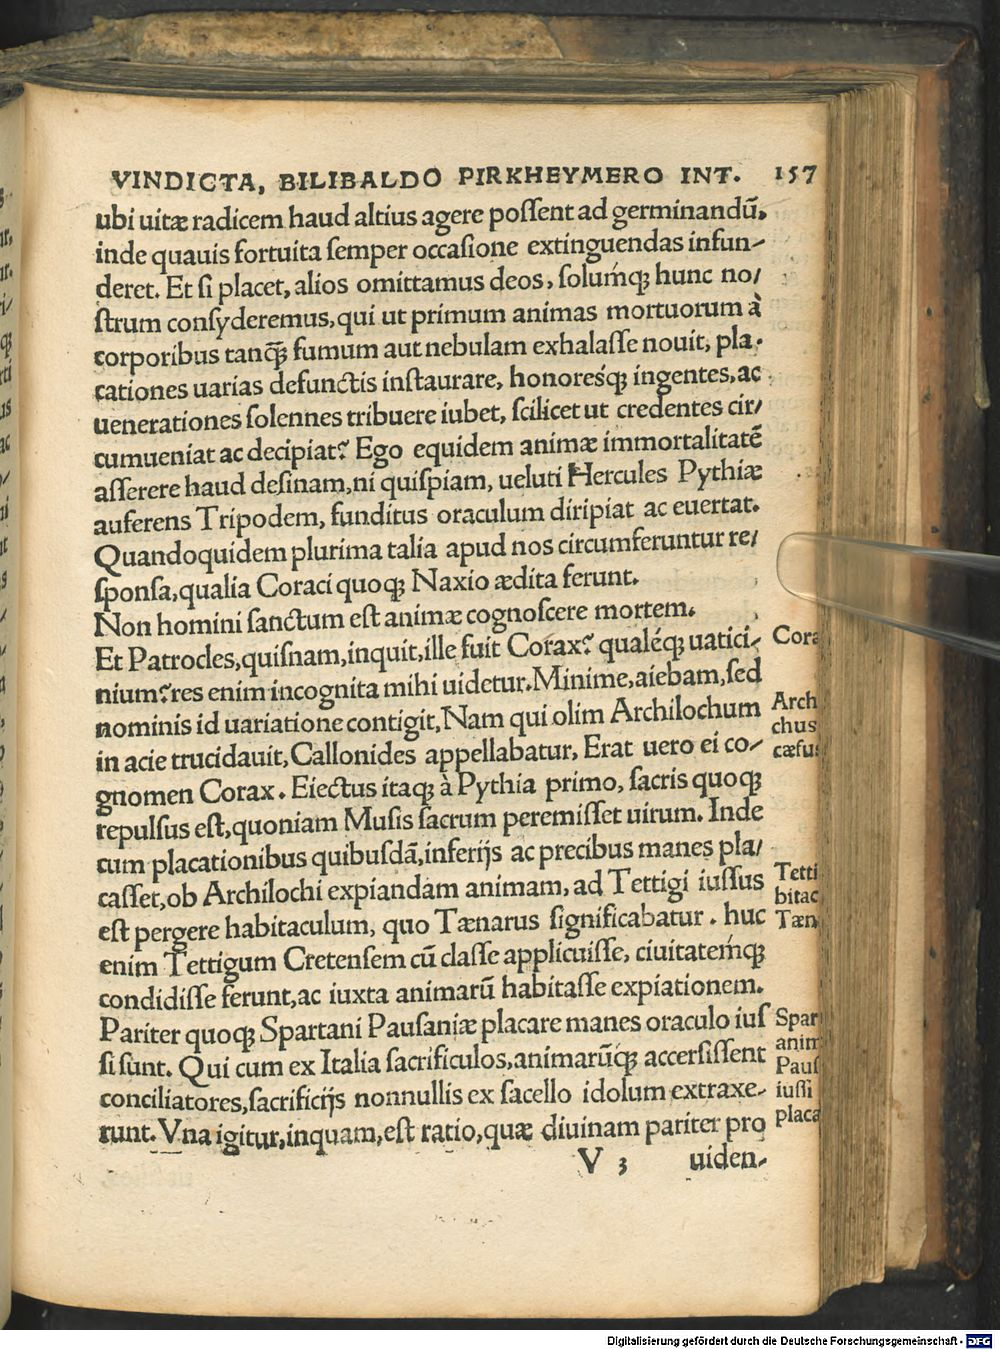 VINDICTA, BILIBALDO PIRKHEYMERO INT. 157
ubi uitæ radicem haud altius agere poſſent ad germinandū,
inde quauis fortuita ſemper occaſione extinguendas infun-
deret. Et ſi placet, alios omittamus deos, ſolumq́ꝫ hunc no/
ſtrum conſyderemus, qui ut primum animas mortuorum à
corporibus tanꝗ̃ fumum aut nebulam exhalaſſe nouit, pla-
cationes uarias defunctis inſtaurare, honoresq́ꝫ ingentes, ac
uenerationes ſolennes tribuere iubet, ſcilicet ut credentes cir/
cumueniat ac decipiat? Ego equidem animæ immortalitatē
aſſerere haud deſinam, ni quiſpiam, ueluti Hercules Pythiæ
auferens Tripodem, funditus oraculum diripiat ac euertat.
Quandoquidem plurima talia apud nos circumferuntur re/
ſponſa, qualia Coraci quoqꝫ Naxio ædita ferunt.
Non homini ſanctum eſt animæ cognoſcere mortem.
Et Patrocles, quiſnam, inquit, ille fuit Corax? qualéqꝫ uatici-
nium? res enim incognita mihi uidetur. Minime, aiebam, ſed
nominis id uariatione contigit, Nam qui olim Archilochum
in acie trucidauit, Callonides appellabatur, Erat uero ei co-
gnomen Corax. Eiectus itaqꝫ à Pythia primo, ſacris quoqꝫ
repulſus eſt, quoniam Muſis ſacrum peremiſſet uirum. Inde
cum placationibus quibuſdā, inferijs ac precibus manes pla/
caſſet, ob Archilochi expiandam animam, ad Tettigi iuſſus
eſt pergere habitaculum, quo Tænarus ſignificabatur. huc
enim Tettigum Cretenſem cū claſſe applicuiſſe, ciuitatemq́ꝫ
condidiſſe ferunt, ac iuxta animarū habitaſſe expiationem.
Pariter quoqꝫ Spartani Pauſaniæ placare manes oraculo iuſ
ſi ſunt. Qui cum ex Italia ſacrificulos, animarūqꝫ accerſiſſent
conciliatores, ſacrificijs nonnullis ex ſacello idolum extraxe-
runt. Vna igitur, inquam, eſt ratio, quæ diuinam pariter pro
V 3 uiden-
Cora
Arch
chus
cæſuſ
Tetti
bitac
Tæn
Spar
anim
Pauſ
iuſſi
placa
Digitalisierung gefördert durch die Deutsche Forschungsgemeinschaft - DFG